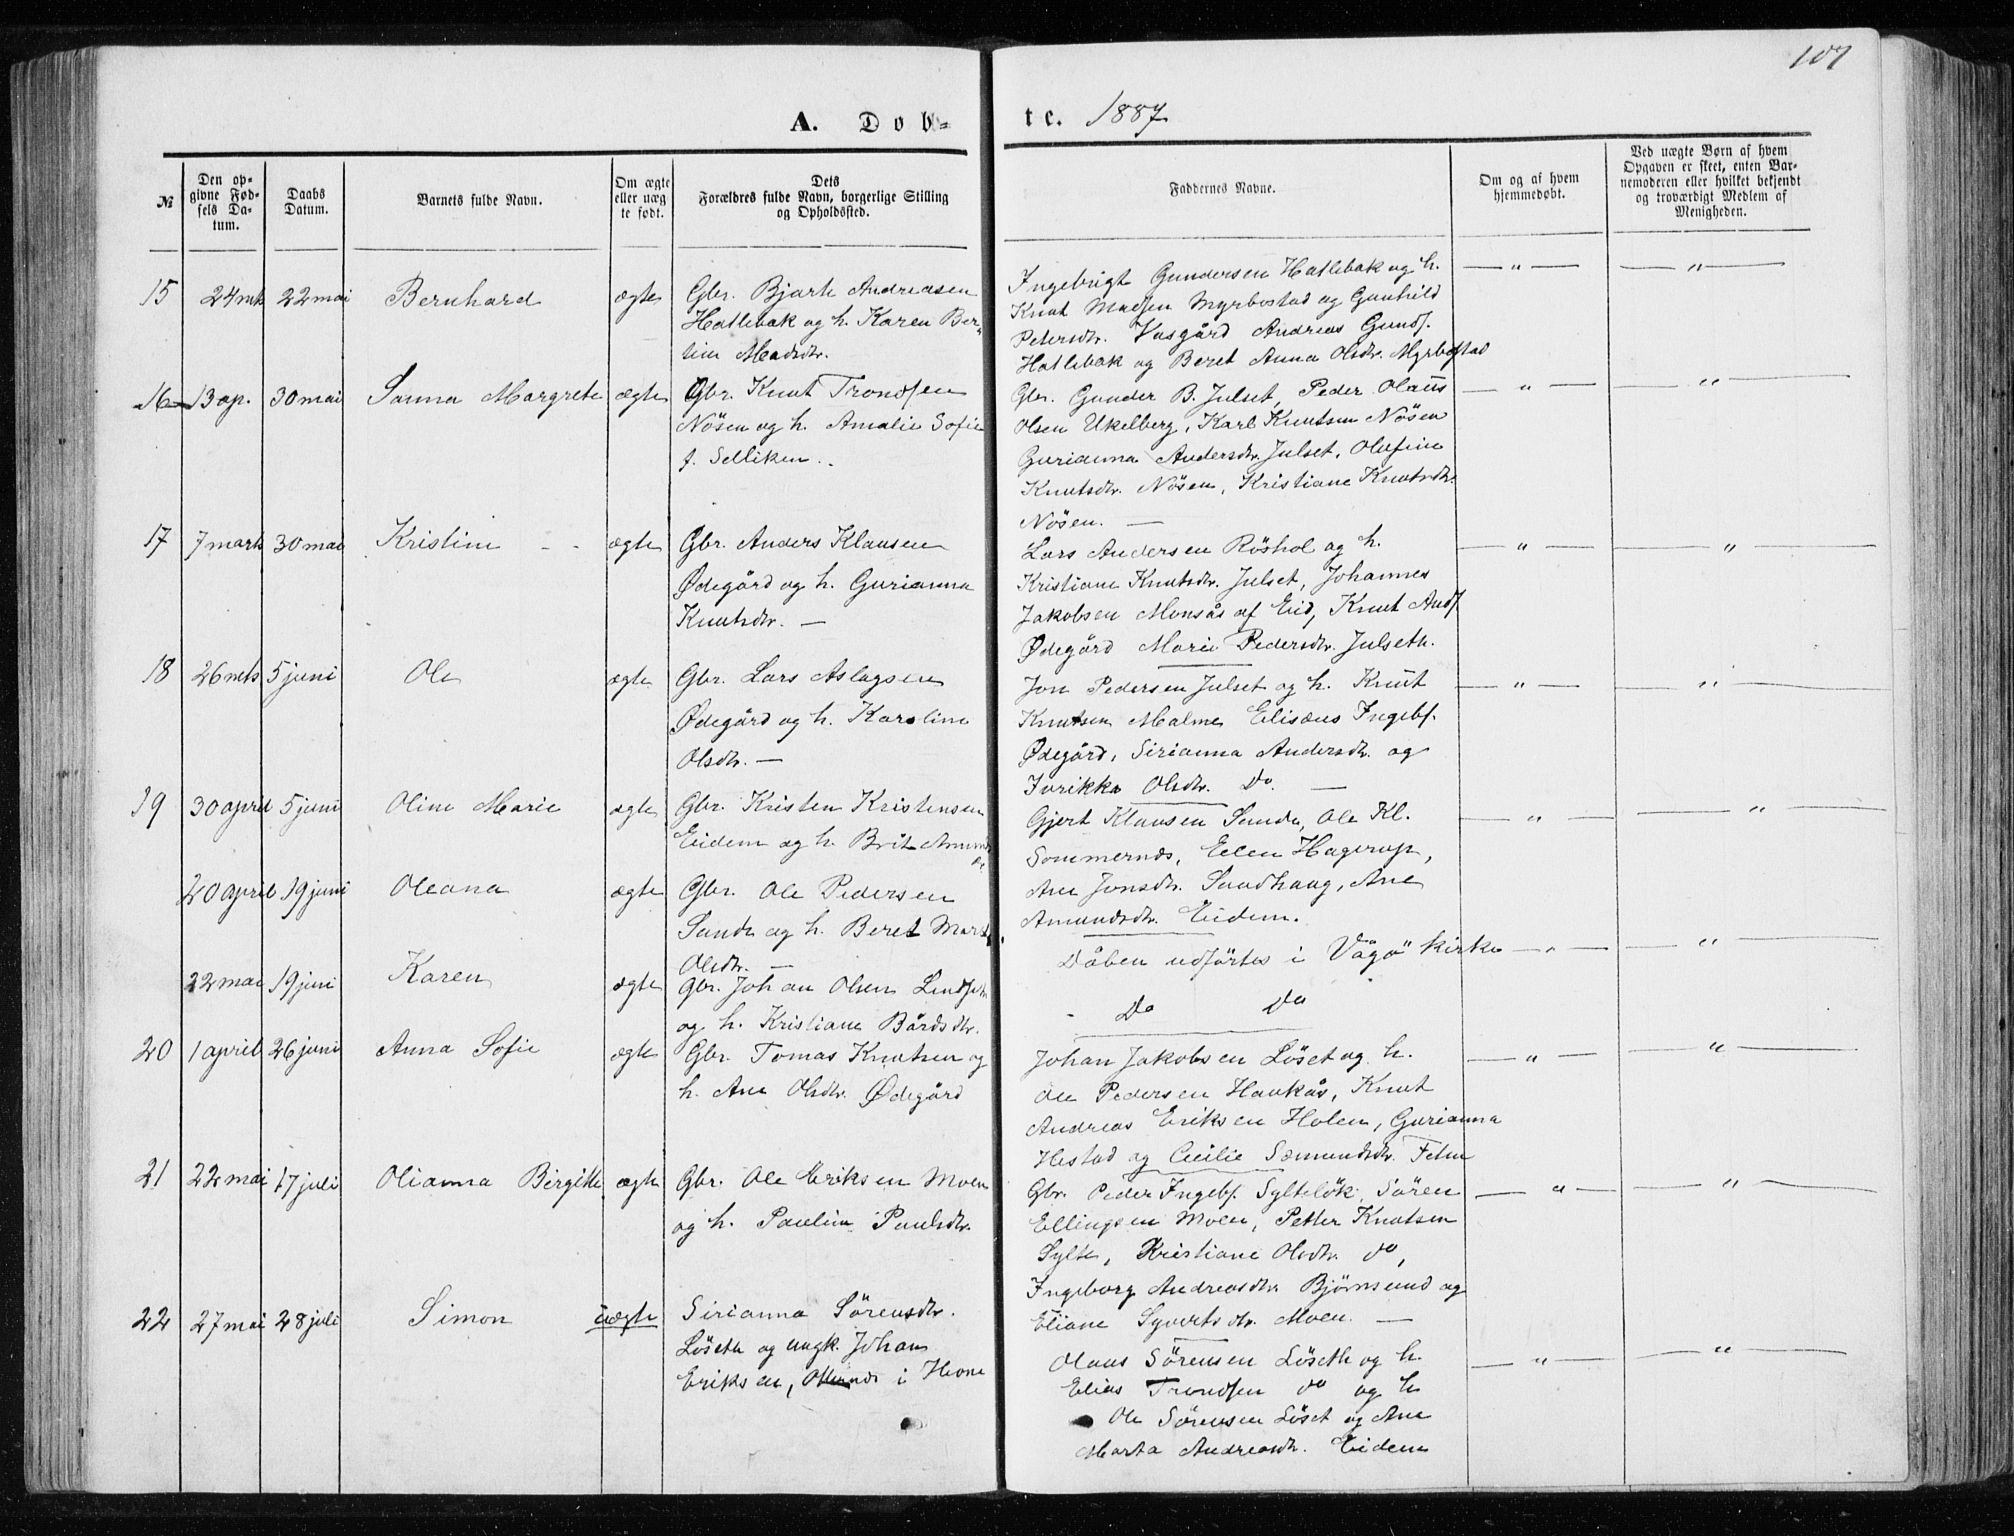 107
A. Døb-
te. 1887
№
Den op-
givne Fød-
sels Da-
tum.
Daabs
Datum.
Barnets fulde Navn.
Om ægte
eller uæg
te født.
Dets
Forældres fulde Navn, borgerlige Stilling
og Opholdssted.
Faddernes Navne.
Om og af hvem
hjemmedøbt.
Ved uægte Børn af hvem
Opgaven er skeet, enten Bar-
nemoderen eller hvilket bekjendt
og troværdigt Medlem af
Menigheden.
15 24 mk 22 mai Bernhard ægte
Gbr. Bjarte Andreasen
Hatlebak og h. Karen Ber-
tine Madsdtr.
Ingebrigt Gundersen Hatlebak og h.
Knut Madsen Myrbostad og Gunhild
Petersdtr. Vasgård Andreas Gunds.
Hatlebak og Beret Anna Olsdtr. Myrbostad
16 13 ap. 30 mai Sanna Margrete ægte
Gbr. Knut Trondsen
Nösen og h. Amalie Sofie
f. Selliken.
Gbr. Gunder B. Julset, Peder Olaus
Olsen Ukelberg, Karl Knutsen Nösen
Gurianna Andersdtr. Julset, Olufine
Knutsdtr. Nösen, Kristiane Knutsdtr.
Nösen. —
17 7 marts 30 mai Kristine ægte
Gbr. Anders Klausen
Ødegård og h. Gurianna
Knutsdtr. —
Lars Andersen Röshol og h.
Kristiane Knutsdtr. Julset, Johannes
Jakobsen Monsås af Eid, Knut Ands.
Ødegård Marie Pedersdtr. Julseth.
18 26 mts 5 juni Ole ægte
Gbr. Lars Aslagsen
Ødegård og h. Karoline
Olsdtr. —
Jon Pedersen Julset og h. Knut
Knutsen Malme Elisæus Ingebs.
Ødegård, Sirianna Andersdtr. og
Ivrikke Olsdtr. Do. —
19 30 april 5 juni Oline Marie ægte
Gbr. Kristen Kristensen
Eidem og h. Brit Amunds
dr
Gjert Klausen Sunde, Ole Kl.
Sommernes, Elen Hagerup,
Ane Jonsdtr. Sandhaug, Ane
Amundsdtr. Eidem.
20 april 19 juni Oleana ægte
Gbr. Ole Pedersen
Sunde og h. Beret Marta
Olsdtr. —
Dåben udförtes i Vågö kirke
22 mai 19 juni Karen ægte
Gbr. Johan Olsen Lindset
og h. Kristiane Bårdsdtr.
Do Do
20 1 april 26 juni Anna Sofie ægte
Gbr. Tomas Knutsen og
h. Ane Olsdtr. Ødegård
Johan Jakobsen Löset og h.
Ole Pedersen Haukås, Knut
Andreas Eriksen Holen, Gurianna
Hestad og Cecilie Sæmundsdtr. Fetne
21 22 mai 17 juli Olianna Birgitte ægte
Gbr. Ole Eriksen Moen
og h. Pauline Paulsdtr.
Gbr. Peder Ingebs. Sylteløk, Sören
Ellingsen Moen, Petter Knutsen
Sylte, Kristiane Olsdtr. do,
Ingeborg Andreasdtr. Bjørnsund og
Eliane Syvertsdtr. Moen. —
22 27 mai 28 juli Simon uægte
Sirianna Sörensdtr.
Löseth og ungk. Johan
Eriksen, i Heone
Olaus Sörensen Löseth og h.
Elias Trondsen do og h
Ole Sörensen Löset og Ane
Marta Andreasdtr. Eidem